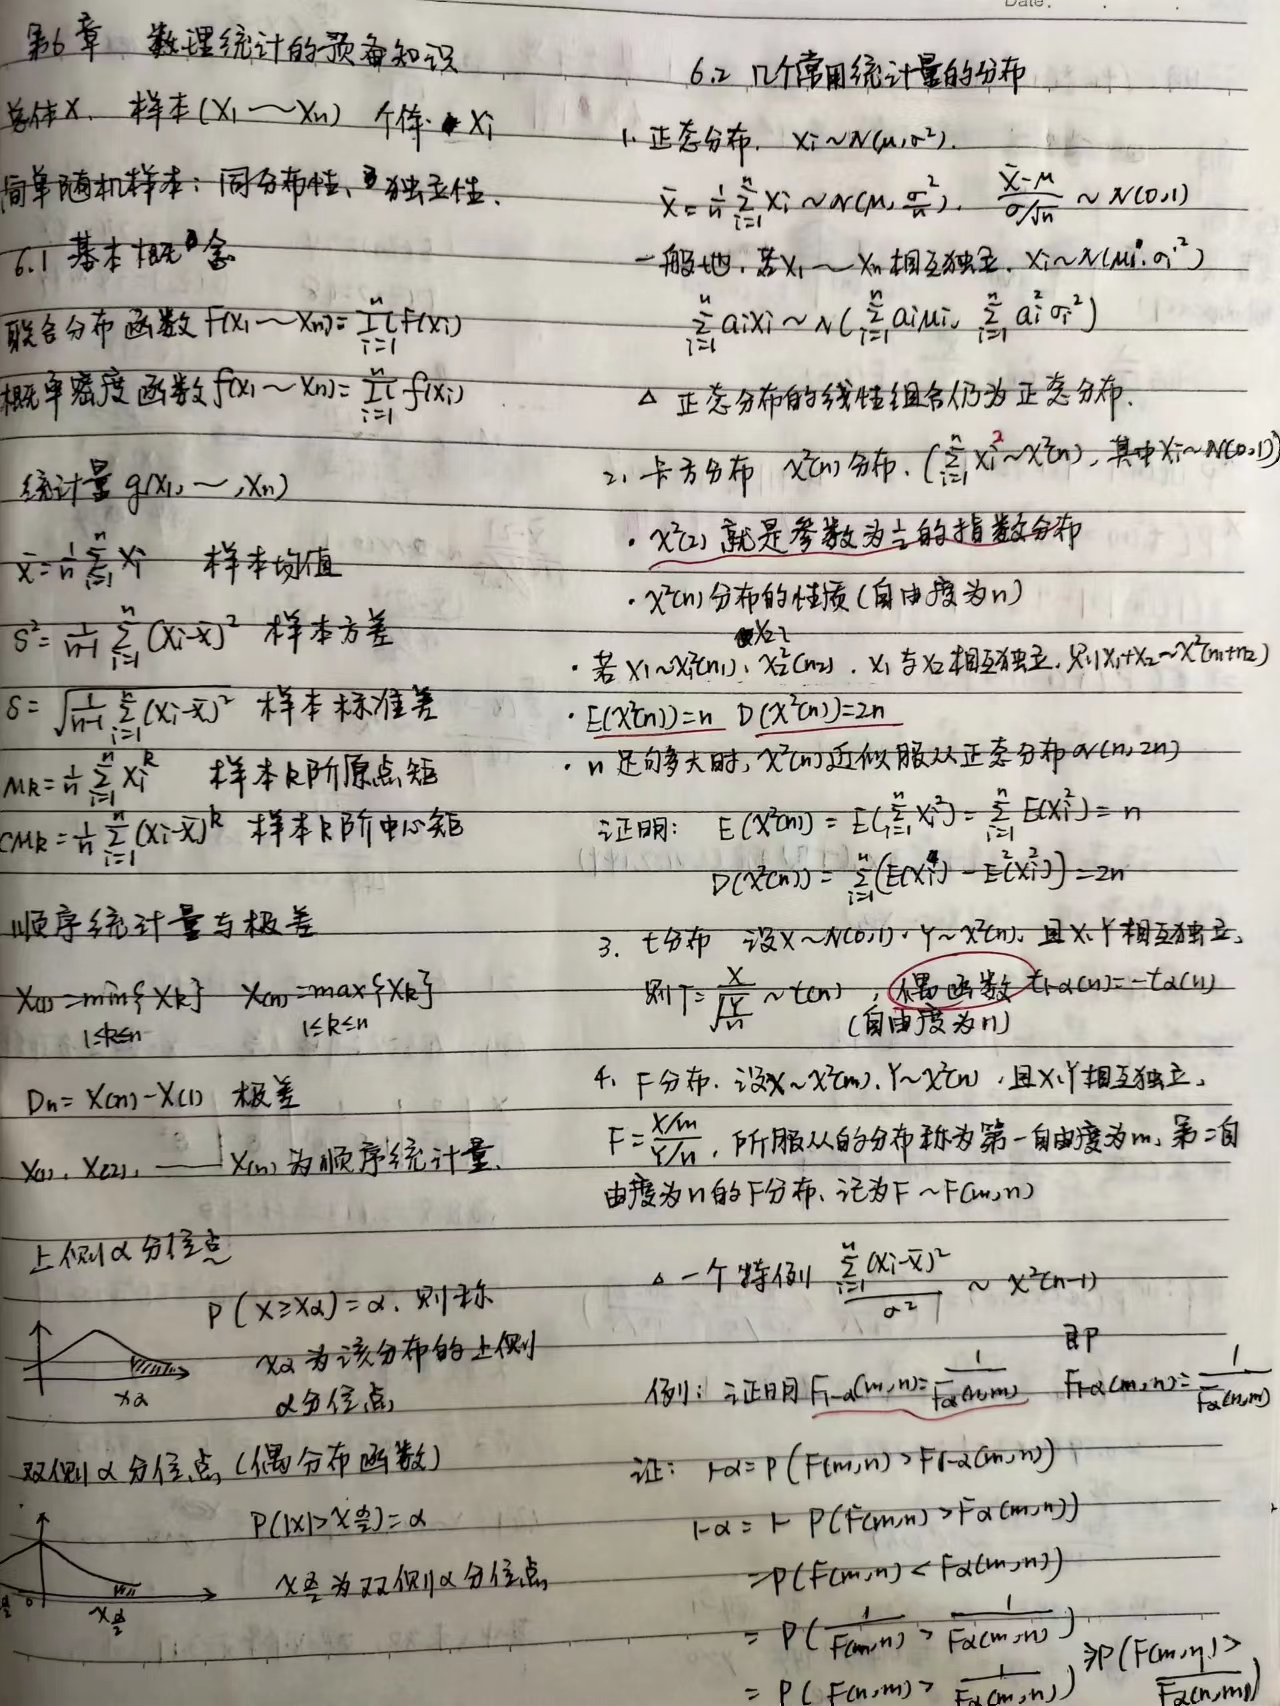 Date:
第6章 数理统计的预备知识
总体X. 样本(X1～Xn) 个体· Xi
简单随机样本：同分布性、独立性.
6.1 基本概念
联合分布函数F(X1～Xn)=∏_{i=1}^{n}F(Xi)
概率密度函数f(X1～Xn)=∏_{i=1}^{n}f(Xi)
统计量g(X1,～,Xn)
X̄=1/n ∑_{i=1}^{n}Xi 样本均值
S²=1/(n-1) ∑_{i=1}^{n}(Xi-X̄)² 样本方差
S=√(1/(n-1) ∑_{i=1}^{n}(Xi-X̄)²) 样本标准差
Mk=1/n ∑_{i=1}^{n}Xi^k 样本k阶原点矩
CMk=1/n ∑_{i=1}^{n}(Xi-X̄)^k 样本k阶中心矩
顺序统计量与极差
X(1)=min{Xk} X(n)=max{Xk}
1≤k≤n 1≤k≤n
Dn=X(n)-X(1) 极差
X(1),X(2),——X(n)为顺序统计量.
上侧α分位点
P(X≥Xα)=α.则称
xα为该分布的上侧
α分位点
xα
双侧α分位点(偶分布函数)
P(|X|>x_{α/2})=α
x_{α/2}为双侧α分位点
0 x_{α/2}
6.2 几个常用统计量的分布
1.正态分布. Xi～N(μ,σ²).
X̄=1/n ∑_{i=1}^{n}Xi～N(μ,σ²/n). (X̄-μ)/(σ/√n)～N(0,1)
一般地,若X1～Xn相互独立.Xi～N(μi,σi²)
∑_{i=1}^{n}aiXi～N(∑_{i=1}^{n}aiμi, ∑_{i=1}^{n}ai²σi²)
△ 正态分布的线性组合仍为正态分布.
2.卡方分布 χ²(n)分布.(∑_{i=1}^{n}Xi²～χ²(n),其中Xi～N(0,1))
·χ²(2)就是参数为½的指数分布
·χ²(n)分布的性质(自由度为n)
·若X1～χ²(n1), X2～χ²(n2).X1与X2相互独立,则X1+X2～χ²(n1+n2)
·E(χ²(n))=n D(χ²(n))=2n
·n足够大时,χ²(n)近似服从正态分布N(n,2n)
证明: E(χ²(n))=E(∑_{i=1}^{n}Xi²)=∑_{i=1}^{n}E(Xi²)=n
D(χ²(n))=∑_{i=1}^{n}(E(Xi⁴)-E²(Xi²))=2n
3. t分布 设X～N(0,1).Y～χ²(n),且X,Y相互独立.
则T=X/√(Y/n)～t(n),偶函数 t1-α(n)=-tα(n)
(自由度为n)
4. F分布.设X～χ²(m),Y～χ²(n).且X,Y相互独立.
F=(X/m)/(Y/n),所服从的分布称为第一自由度为m,第二自
由度为n的F分布,记为F～F(m,n)
△一个特例 ∑_{i=1}^{n}(Xi-X̄)²/σ² ～χ²(n-1)
例: 证明F1-α(m,n)=1/Fα(n,m) 即F1-α(m,n)=1/Fα(n,m)
证: 1-α=P(F(m,n)>F1-α(m,n))
1-α=1-P(F(m,n)>Fα(m,n))
=P(F(m,n)<Fα(m,n))
=P(1/F(m,n)>1/Fα(m,n))
=P(F(n,m)>1/Fα(m,n)) P(F(m,n)>1/Fα(n,m))